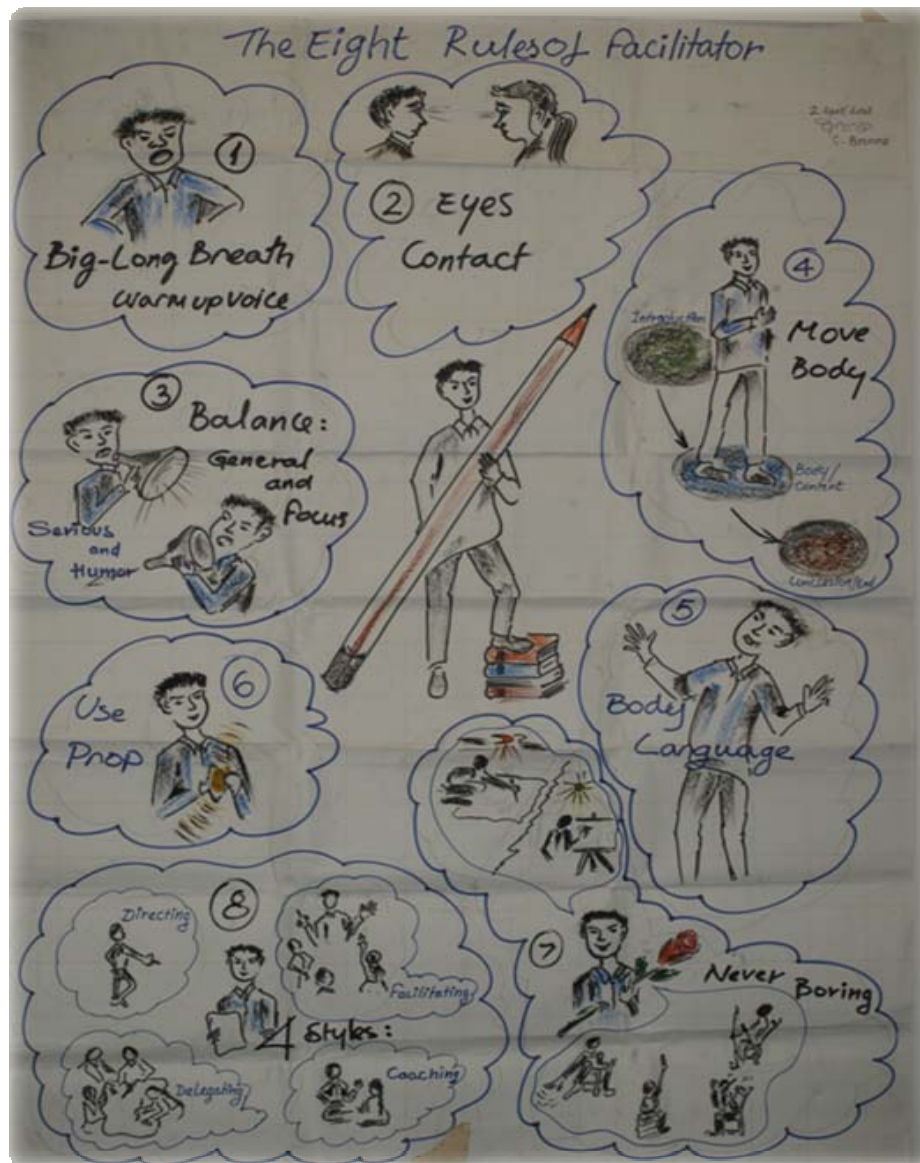 The Eight Rules of Facilitator
1
Big-Long Breath
Warm up voice
2 Eyes
Contact
3 Balance:
General
and
Focus
Serious
and
Humor
4
Move
Body
Introduction
Body/
Content
Conclusion/End
5
Body
Language
6
Use
Prop
7
Never Boring
8
4 Styles:
Directing
Facilitating
Delegating
Coaching